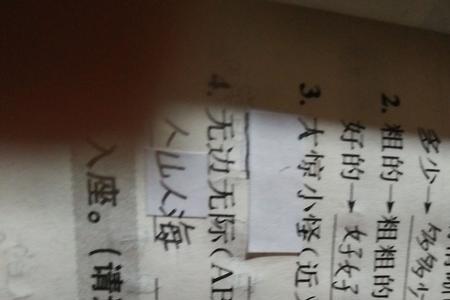 多少→多多少
2. 粗的→粗粗的
好的→好好
3. 大惊小怪(近
4. 无边无际(AB
人山人海
入座。(请